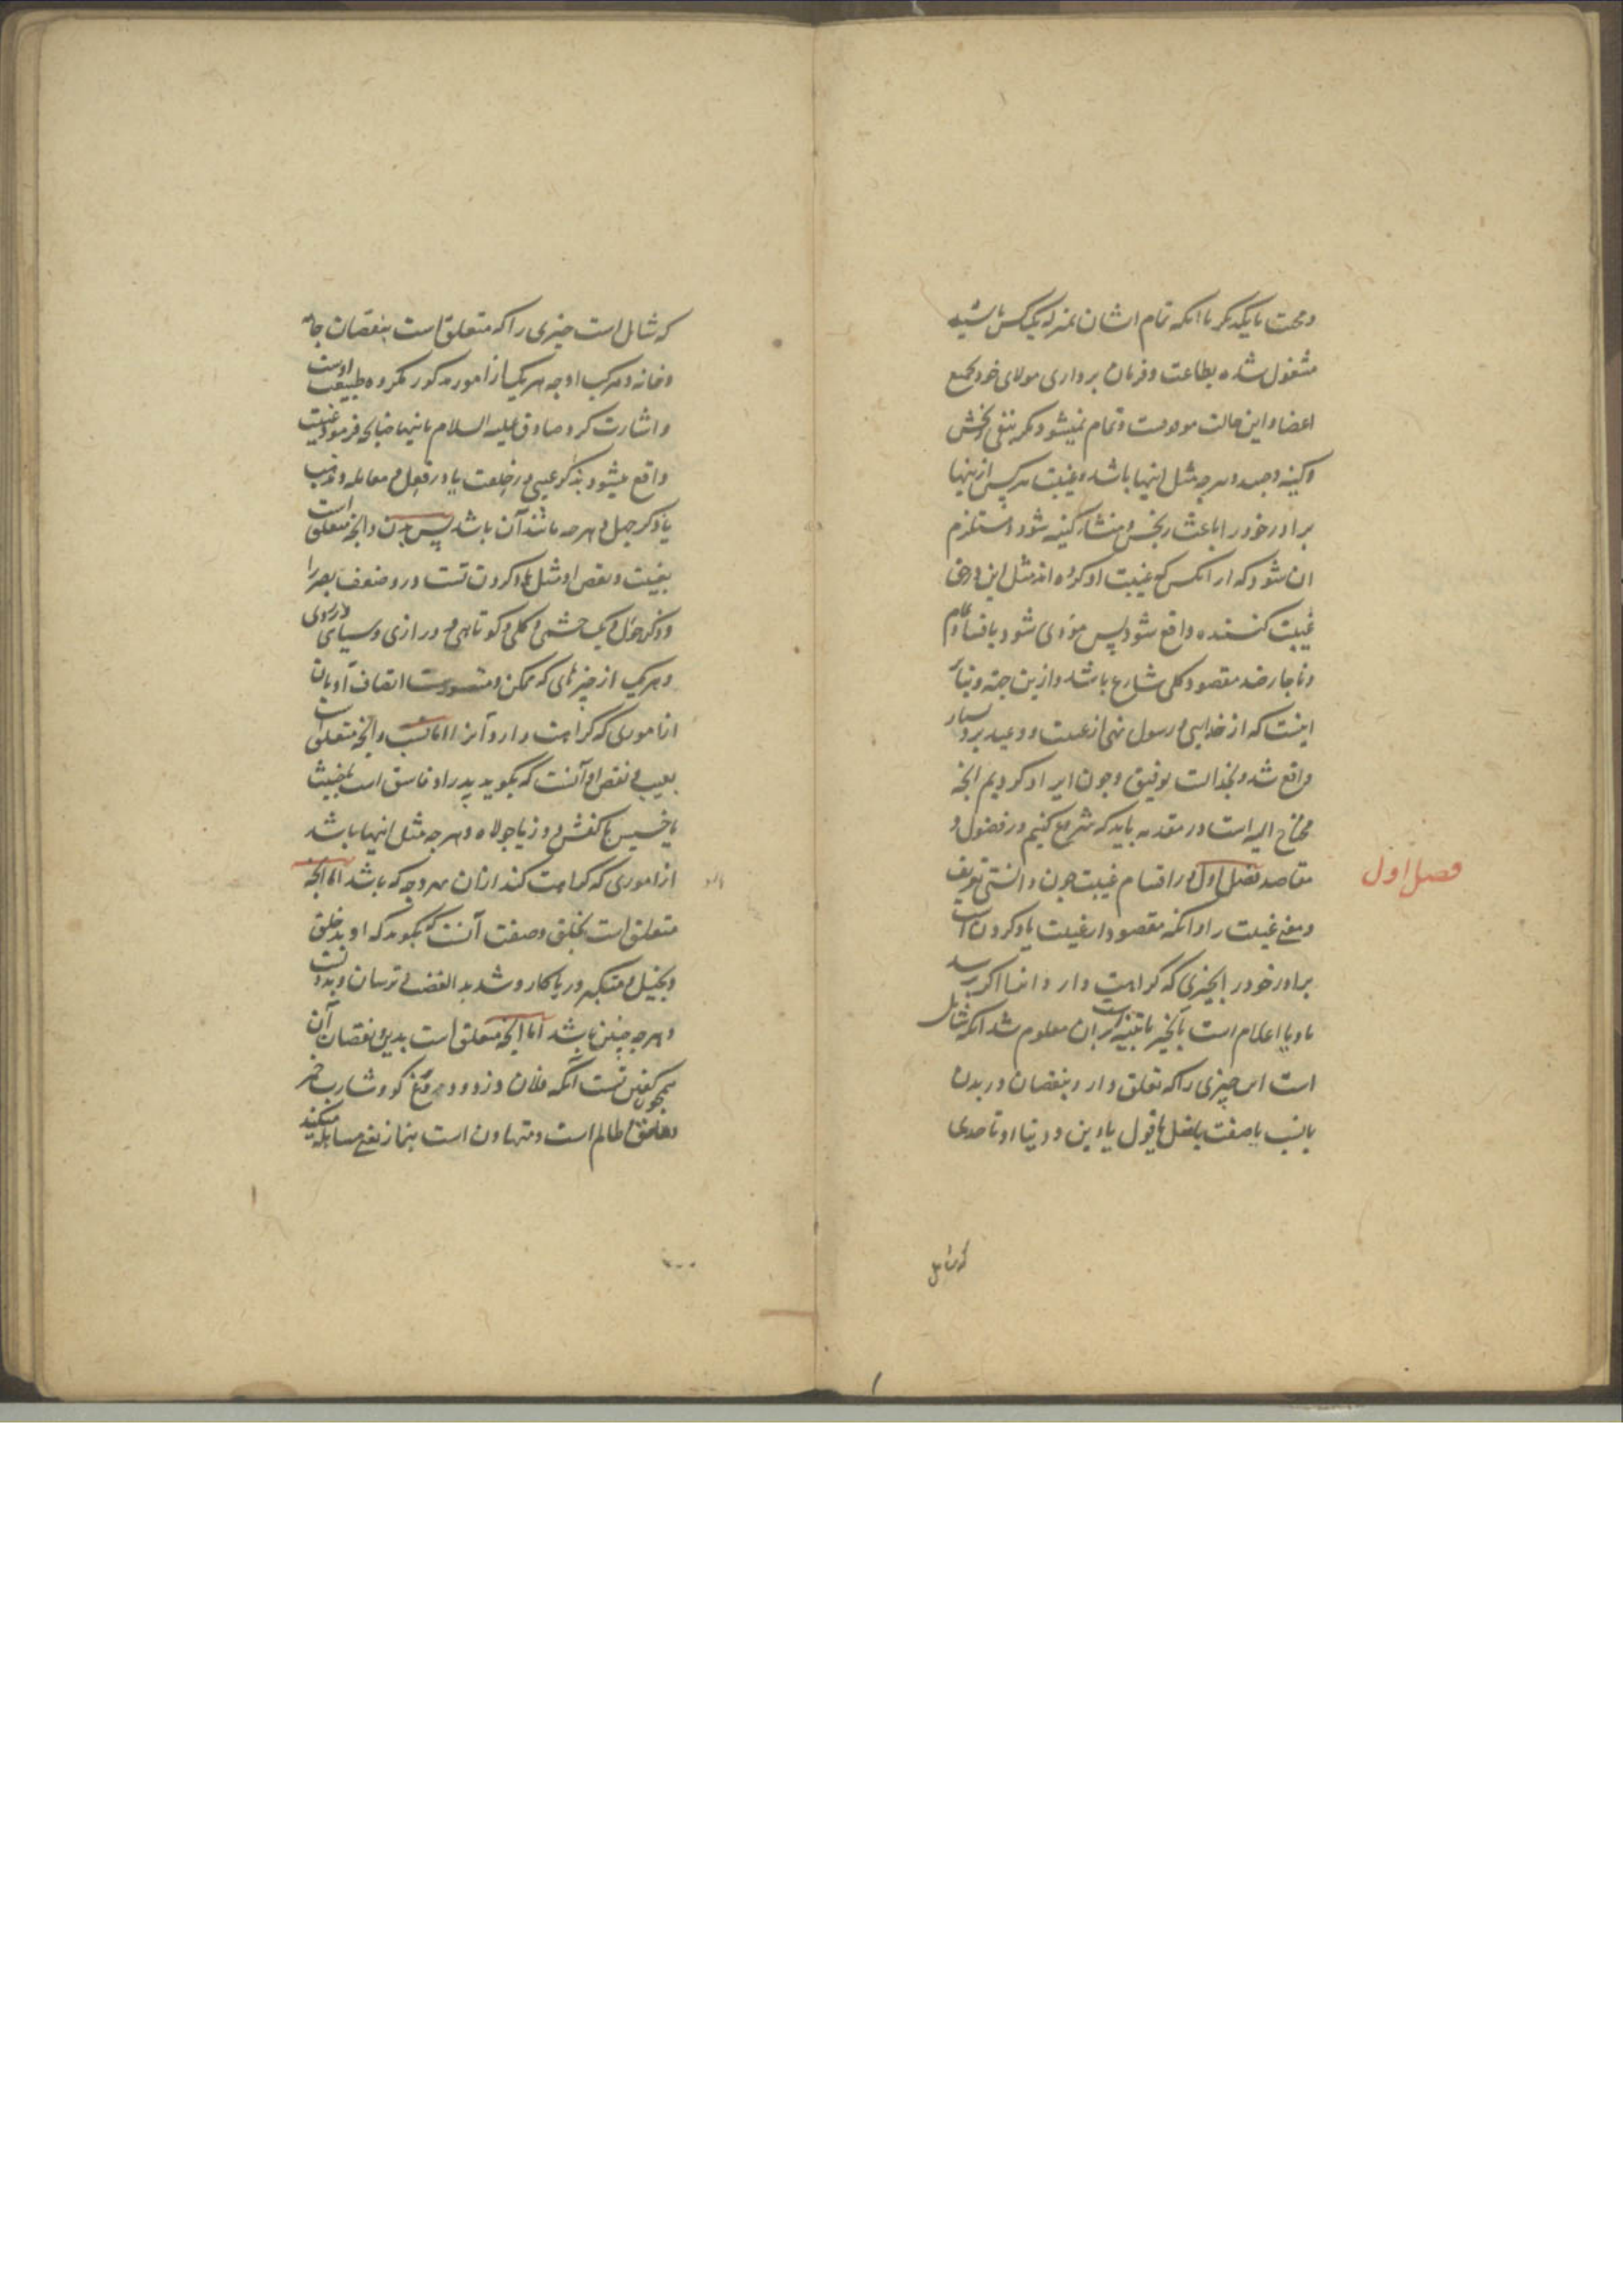 ومحبت با یکدیگر تا آنکه تمام ایشان بمنزله یک کس باشند
مشغول شده بطاعت و فرمان برداری مولای خود بجمیع
اعضا و این حالت موقوفست و تمام نمیشود مگر بنفی رنجش
وکینه وحسد وهرچه مثل اینها باشد و غیبت هر کس ازینها
برادر خود را باعث رنجش و منشاء کینه شود و مستلزم
آن شود که از آنکس که غیبت او کرده اند مثل این در حق
غیبت کننده واقع شود پس مؤدی شود بافساد تمام
وناچار ضد مقصود کلی شارع باشد و ازین جهة
اینست که از خدا و رسول نهی از غیبت و وعید برو بسیار
واقع شد و بخداست توفیق و چون ایراد کردیم آنچه
محتاج الیه است در مقدمه باید که شروع کنیم در فصول و
فصل اول
مقاصد فصل اول در اقسام غیبت چون دانستی تعریف
ومعنی غیبت را و آنکه مقصود از غیبت یاد کردن است
برادر خود را بچیزی که کراهت دارد از آن اگر برسد
باو یا اعلام است بآنچیز یا تنبیه است بر آن معلوم شد آنکه شامل
است این چیزی را که تعلق دارد بنقصان در بدن
یا نسب یا صفت یا فعل یا قول یا دین و دنیا او تا حدی
که شامل
که شامل است چیزی را که متعلق است بنقصان جامه
وخانه ومرکب او چه هر یک از امور مذکور مکروه طبیعت اوست
واشارت کرد صادق علیه السلام باینها چنانچه فرمود غیبت
واقع میشود بذکر عیبی در خلقت یا در فعل و معامله و مذهب
یا ذکر جهل و هرچه مانند آن باشد پس بدن و آنچه متعلق است
بغیبت ونقص او مثل یاد کردن تست درو ضعف بصر را
وذکر حول و یک چشمی و کلی و کوتاهی و درازی و سیاهی و زردی
وهر یک از چیزهای که ممکن و متصورست اتصاف او بآن
از اموری که کراهت دارد آنرا اما نسب و آنچه متعلق است
بعیب و نقص او آنست که بگوید پدر او فاسق است یا خبیث
یا خسیس یا کفش دوز یا جولاه و هرچه مثل اینها باشد
از اموری که کراهت کند از آن بهر وجه که باشد اما آنچه
متعلق است بخلق و صفت آنست که بگوید که او بد خلق
وبخیل و متکبر و ریاکار و شدید الغضب و ترسان و بددلست
وهرچه چنین باشد اما آنچه متعلق است بدین و نقصان آن
همچون گفتن تست آنکه فلان دزد و دروغ گو و شارب خمر
و ظالم است و متهاون است بنماز یعنی مساهله میکند